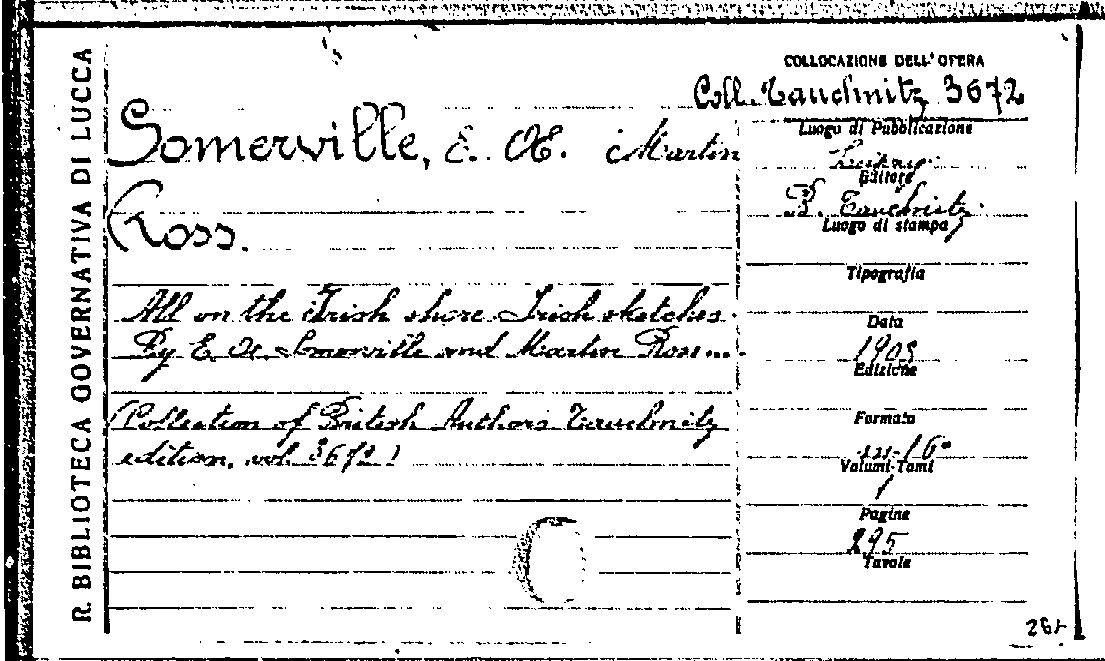 R. BIBLIOTECA GOVERNATIVA DI LUCCA
COLLOCAZIONE DELL'OPERA
Coll. Tauchnitz 3672
Somerville, E. OE. Martin
Ross.
All on the Irish shore Irish sketches.
By E. OE. Somerville and Martin Ross...
(Collection of British Authors Tauchnitz
edition, vol. 3672)
Luogo di Pubblicazione
Leipzig
Editore
B. Tauchnitz
Luogo di stampa
Tipografia
Data
1903
Edizione
Formato
in-16°
Volumi-Tomi
1
Pagine
295
Tavole